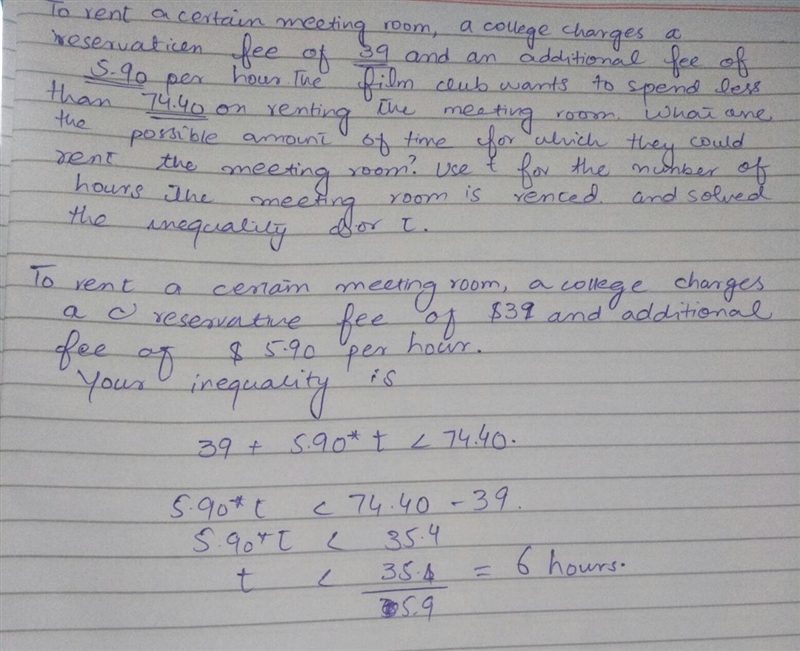 To rent a certain meeting room, a college charges a
reservation fee of 39 and an additional fee of
5.90 per hour The film club wants to spend less
than 74.40 on renting The meeting room. What are
the possible amount of time for which they could
rent the meeting room? Use t for the number of
hours The meeting room is renced. and solved
the inequality for t.
To rent a certain meeting room, a college charges
a reservative fee of $39 and additional
fee of $ 5.90 per hour.
Your inequality is
39 + 5.90* t < 74.40.
5.90* t < 74.40 - 39.
5.90* t < 35.4
t < 35.4 = 6 hours.
5.9